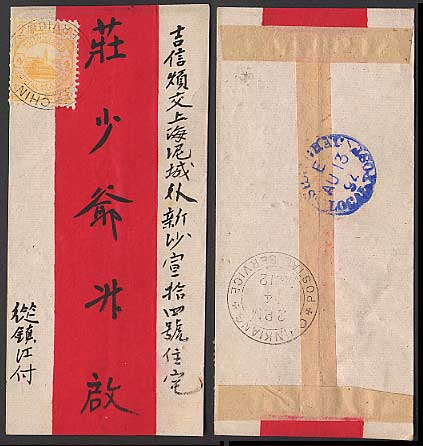 吉信煩交上海泥城外新沙宣拾四號住宅
莊少爺升啟
從鎮江付
CHIN
SERVICE
SHANGHAI
LOCAL POST
E
AU 13
94
CHINKIANG
POSTAL SERVICE
2 PM
12